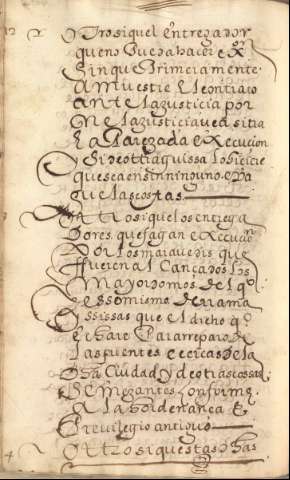 Otrosi quel Entregador
queno Pueda hacer ex.on
sin que Primeramente
amuestre el contrato
ante la Justicia por
que la Justicia vea si tra
e la Parejada execucion
y si de otra guissa lo hicicie
que sea en si ninguno e pa
gue las costas
Otrosi que los entrega
dores que fagan execuçion
Por los maravedis que
fueren alcançados los
mayordomos del q.o
e de somismo derrama
e sissas que el dicho q.o
e para rreparo de
las puentes e cercas de la
dha Ciudad y de otras cossas
semejantes conforme
a la hordenança E
Previlegio antiguo
Otrosi questas dhas